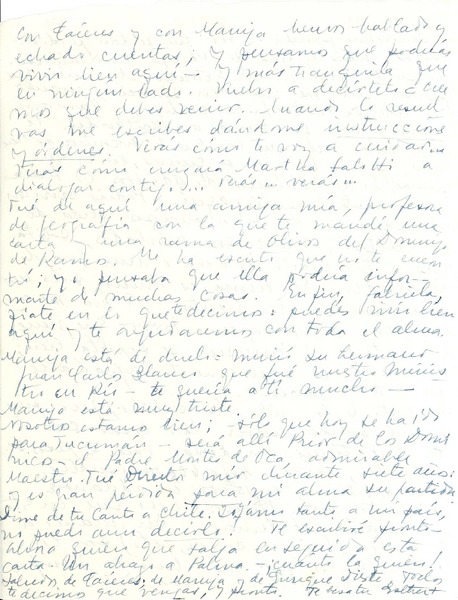 Con Taieres y con Maruja hemos hablado y
echado cuentas; y pensamos que podrías
vivir bien aquí — y más tranquila que
en ningún lado. Vuelvo a decírtelo: cree
mos que debes venir. Cuando lo resuel
vas me escribes dándome instrucciones
y órdenes. Verás como te voy a cuidar...
Verás cómo ninguna Martha Salotti a
dialogar contigo... Verás... verás...
Fué de aquí una amiga mía, profesora
de geografía con la que te mandé una
carta y una rama de olivo del Domingo
de Ramos. Me ha escrito que no te encon
tró; y yo pensaba que ella podría infor-
marte de muchas cosas. En fin, Gabriela,
fíate en lo que te decimos: puedes vivir bien
aquí y te ayudaremos con toda el alma.
Maruja está de duelo: murió su hermano
Juan Carlos Blanco que fué nuestro Minis
tro en Río — te quería a ti mucho —
Maruja está muy triste.
Nosotros estamos bien; — sólo que hoy se ha ido
para Tucumán — será allí Prior de los Domi
nicos — el Padre Montes de Oca, admirable
Maestro. Fué Director mío durante siete años:
y es gran pérdida para mi alma su partida
Dime de tu Canto a Chile. Lejano canto a un país,
no puedo aun decirlo. Te escribiré pronto —
ahora quiero que salga en seguida esta
carta. Un abrazo a Palma. — ¡cuánto la quiero!
Saludos de Taieres; de Maruja y de Enrique Dieste, todos
te decimos que vengas, y pronto. Te besa Esther